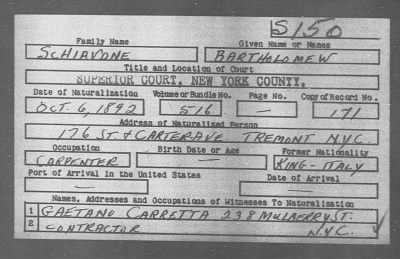 S150
Family Name Given Name or Names
SCHIAVONE BARTHOLOMEW
Title and Location of Court
SUPERIOR COURT, NEW YORK COUNTY.
Date of Naturalization Volume or Bundle No. Page No. Copy of Record No.
OCT. 6, 1892 516 — 171
Address of Naturalized Person
176 ST. & CARTER AVE TREMONT N.Y.C.
Occupation Birth Date or Age Former Nationality
CARPENTER — KING - ITALY
Port of Arrival in the United States Date of Arrival
— —
Names, Addresses and Occupations of Witnesses To Naturalization
1 GAETANO CARRETTA 238 MULBERRY ST.
2 CONTRACTOR N.Y.C.